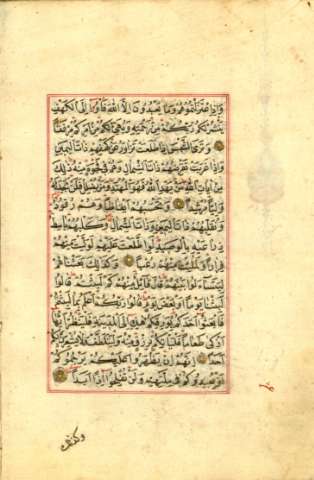 وَإِذِ اعْتَزَلْتُمُوهُمْ وَمَا يَعْبُدُونَ إِلَّا اللَّهَ فَأْوُوا إِلَى الْكَهْفِ
يَنْشُرْ لَكُمْ رَبُّكُمْ مِنْ رَحْمَتِهِ وَيُهَيِّئْ لَكُمْ مِنْ أَمْرِكُمْ مِرْفَقًا
وَتَرَى الشَّمْسَ إِذَا طَلَعَتْ تَزَاوَرُ عَنْ كَهْفِهِمْ ذَاتَ الْيَمِينِ
وَإِذَا غَرَبَتْ تَقْرِضُهُمْ ذَاتَ الشِّمَالِ وَهُمْ فِي فَجْوَةٍ مِنْهُ ذَلِكَ
مِنْ آيَاتِ اللَّهِ مَنْ يَهْدِ اللَّهُ فَهُوَ الْمُهْتَدِ وَمَنْ يُضْلِلْ فَلَنْ تَجِدَ لَهُ
وَلِيًّا مُرْشِدًا وَتَحْسَبُهُمْ أَيْقَاظًا وَهُمْ رُقُودٌ
وَنُقَلِّبُهُمْ ذَاتَ الْيَمِينِ وَذَاتَ الشِّمَالِ وَكَلْبُهُمْ بَاسِطٌ
ذِرَاعَيْهِ بِالْوَصِيدِ لَوِ اطَّلَعْتَ عَلَيْهِمْ لَوَلَّيْتَ مِنْهُمْ
فِرَارًا وَلَمُلِئْتَ مِنْهُمْ رُعْبًا وَكَذَلِكَ بَعَثْنَاهُمْ
لِيَتَسَاءَلُوا بَيْنَهُمْ قَالَ قَائِلٌ مِنْهُمْ كَمْ لَبِثْتُمْ قَالُوا
لَبِثْنَا يَوْمًا أَوْ بَعْضَ يَوْمٍ قَالُوا رَبُّكُمْ أَعْلَمُ بِمَا لَبِثْتُمْ
فَابْعَثُوا أَحَدَكُمْ بِوَرِقِكُمْ هَذِهِ إِلَى الْمَدِينَةِ فَلْيَنْظُرْ أَيُّهَا
أَزْكَى طَعَامًا فَلْيَأْتِكُمْ بِرِزْقٍ مِنْهُ وَلْيَتَلَطَّفْ وَلَا يُشْعِرَنَّ بِكُمْ
أَحَدًا إِنَّهُمْ إِنْ يَظْهَرُوا عَلَيْكُمْ يَرْجُمُوكُمْ
أَوْ يُعِيدُوكُمْ فِي مِلَّتِهِمْ وَلَنْ تُفْلِحُوا إِذًا أَبَدًا
وكذلك